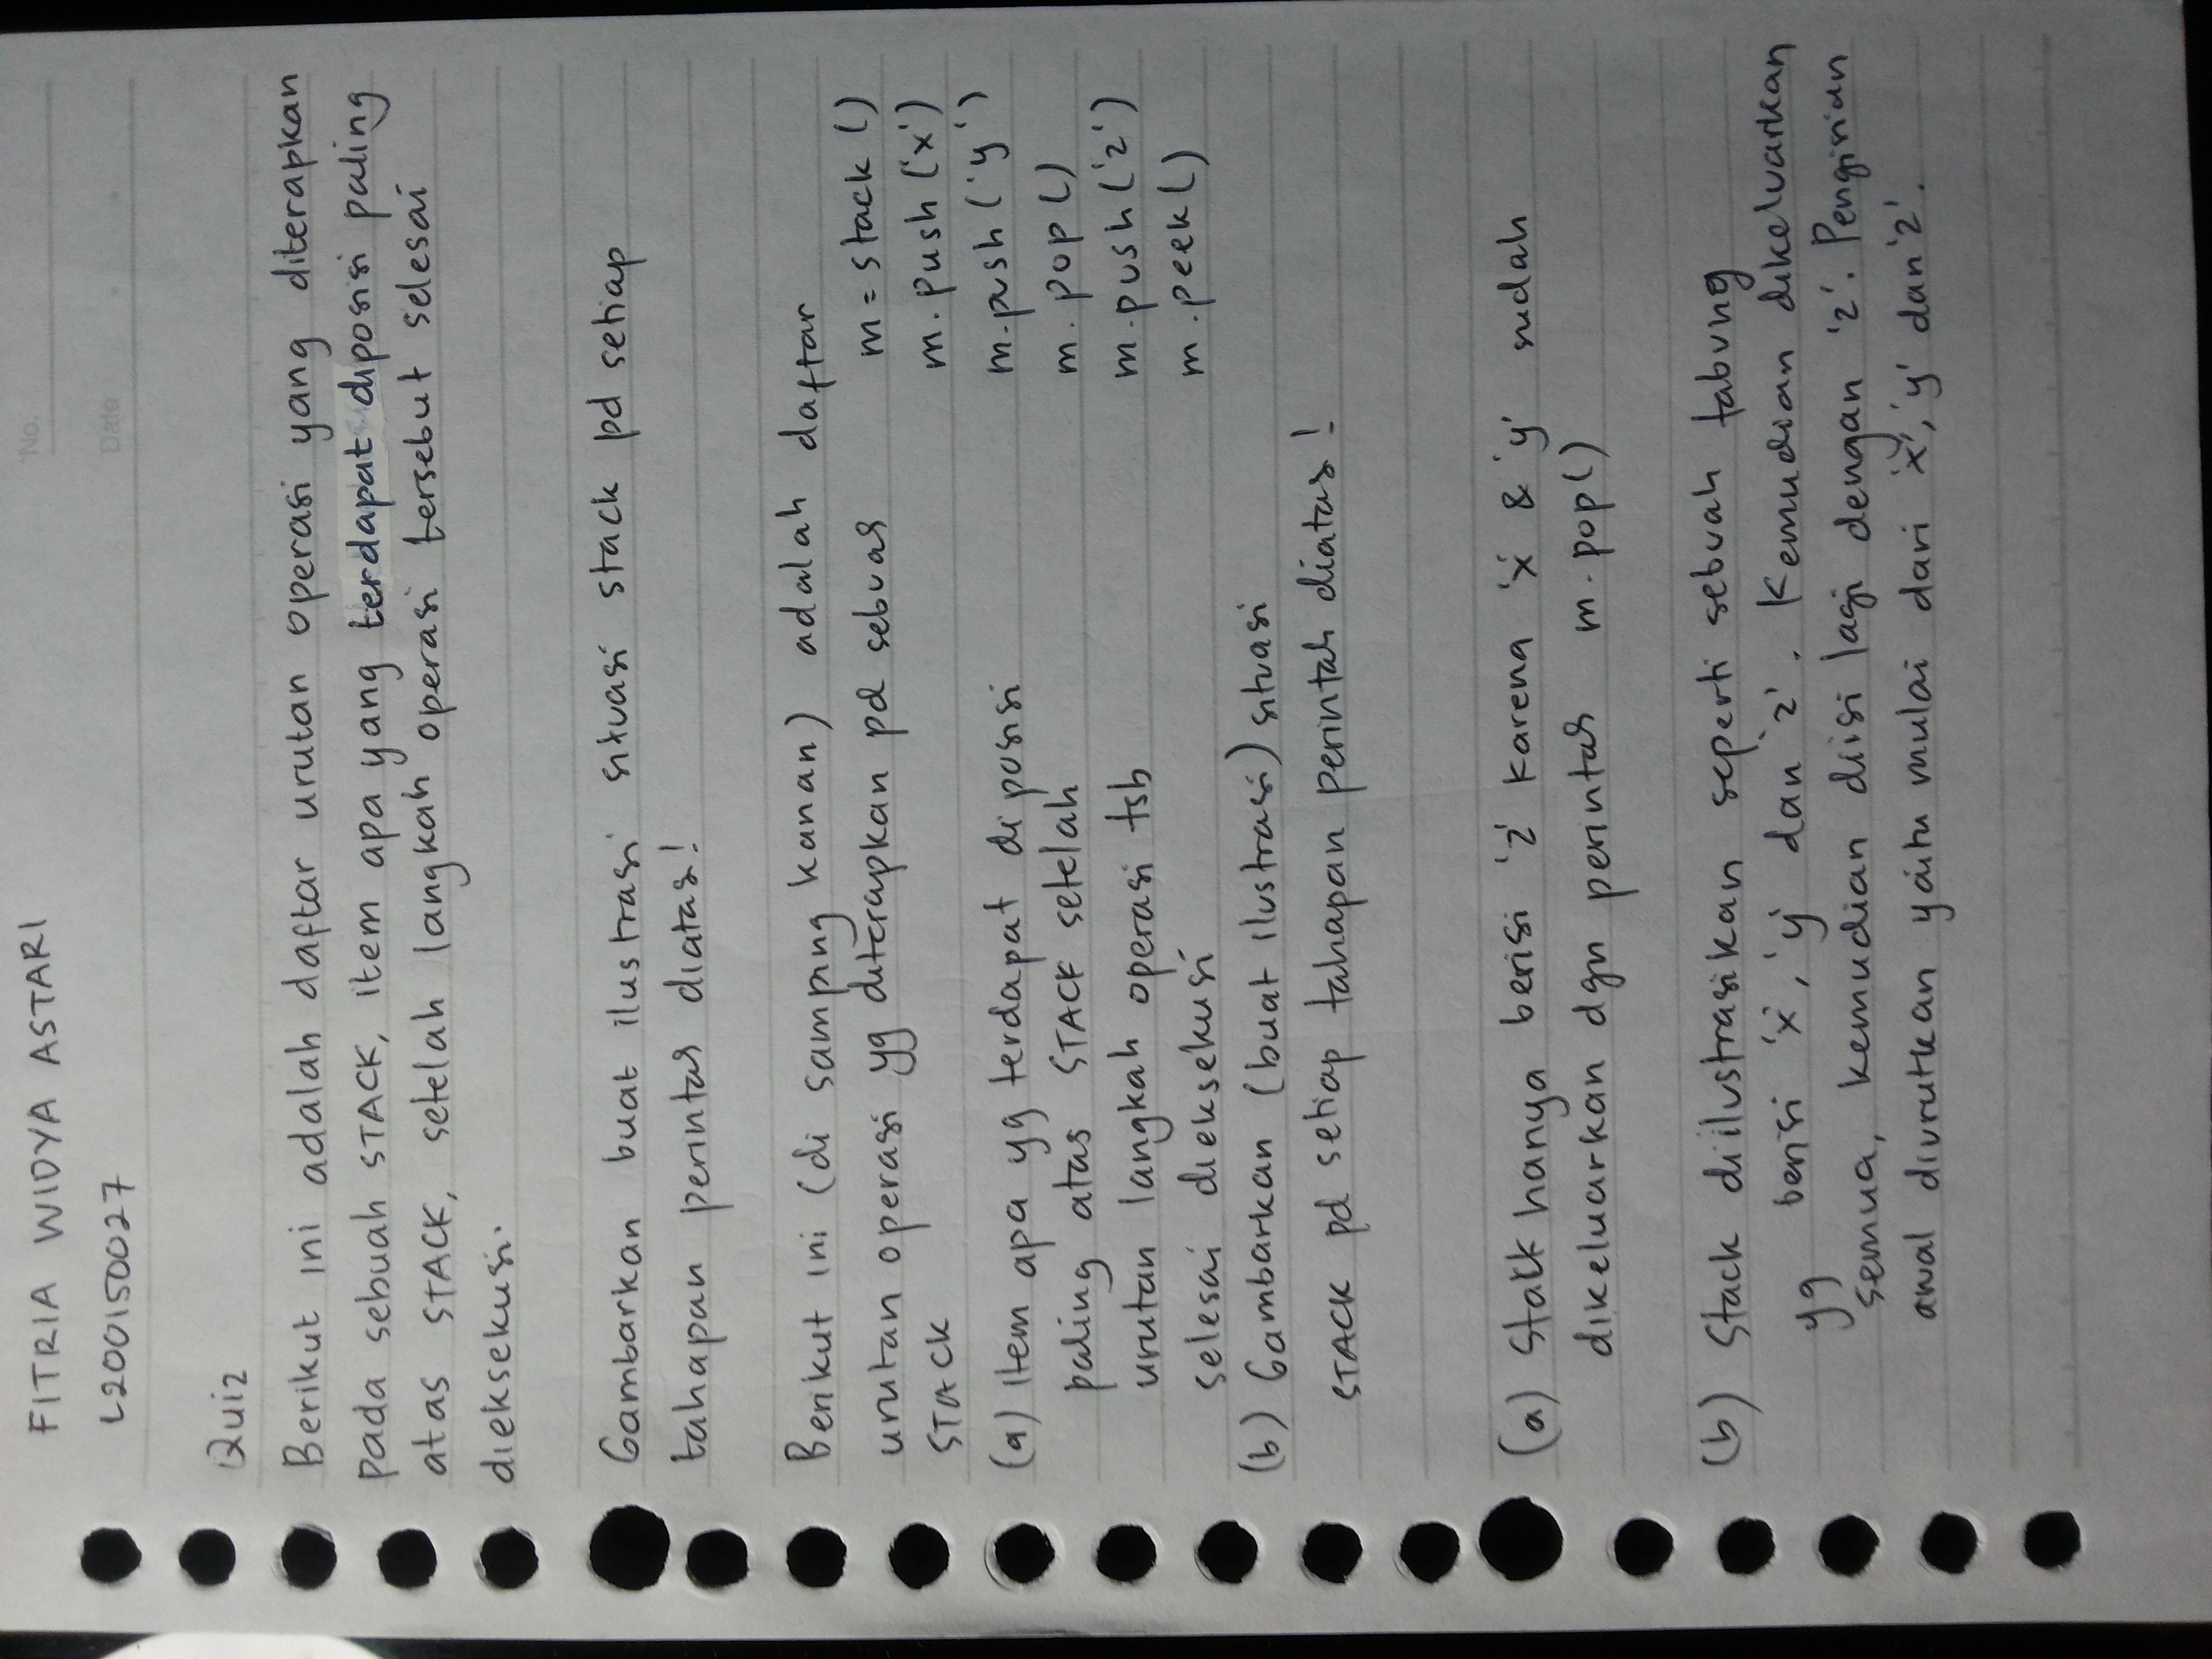 No.
Date
FITRIA WIDYA ASTARI
L200150027
Quiz
Berikut ini adalah daftar urutan operasi yang diterapkan
pada sebuah STACK, item apa yang terdapat diposisi paling
atas STACK, setelah langkah operasi tersebut selesai
dieksekusi.
Gambarkan buat ilustrasi situasi stack pd setiap
tahapan perintah diatas!
Berikut ini (di samping kanan) adalah daftar
urutan operasi yg diterapkan pd sebuah
STACK
m = stack ()
m. push ('x')
m. push ('y')
m. pop ()
m. push ('z')
m. peek ()
(a) Item apa yg terdapat di posisi
paling atas STACK setelah
urutan langkah operasi tsb
selesai dieksekusi
(b) Gambarkan (buat ilustrasi) situasi
STACK pd setiap tahapan perintah diatas!
(a) Stack hanya berisi 'z' karena 'x' & 'y' sudah
dikeluarkan dgn perintah m. pop ()
(b) Stack diilustrasikan seperti sebuah tabung
yg berisi 'x', 'y' dan 'z'. Kemudian dikeluarkan
semua, kemudian diisi lagi dengan 'z'. Pengisian
awal diurutkan yaitu mulai dari 'x', 'y' dan 'z'.